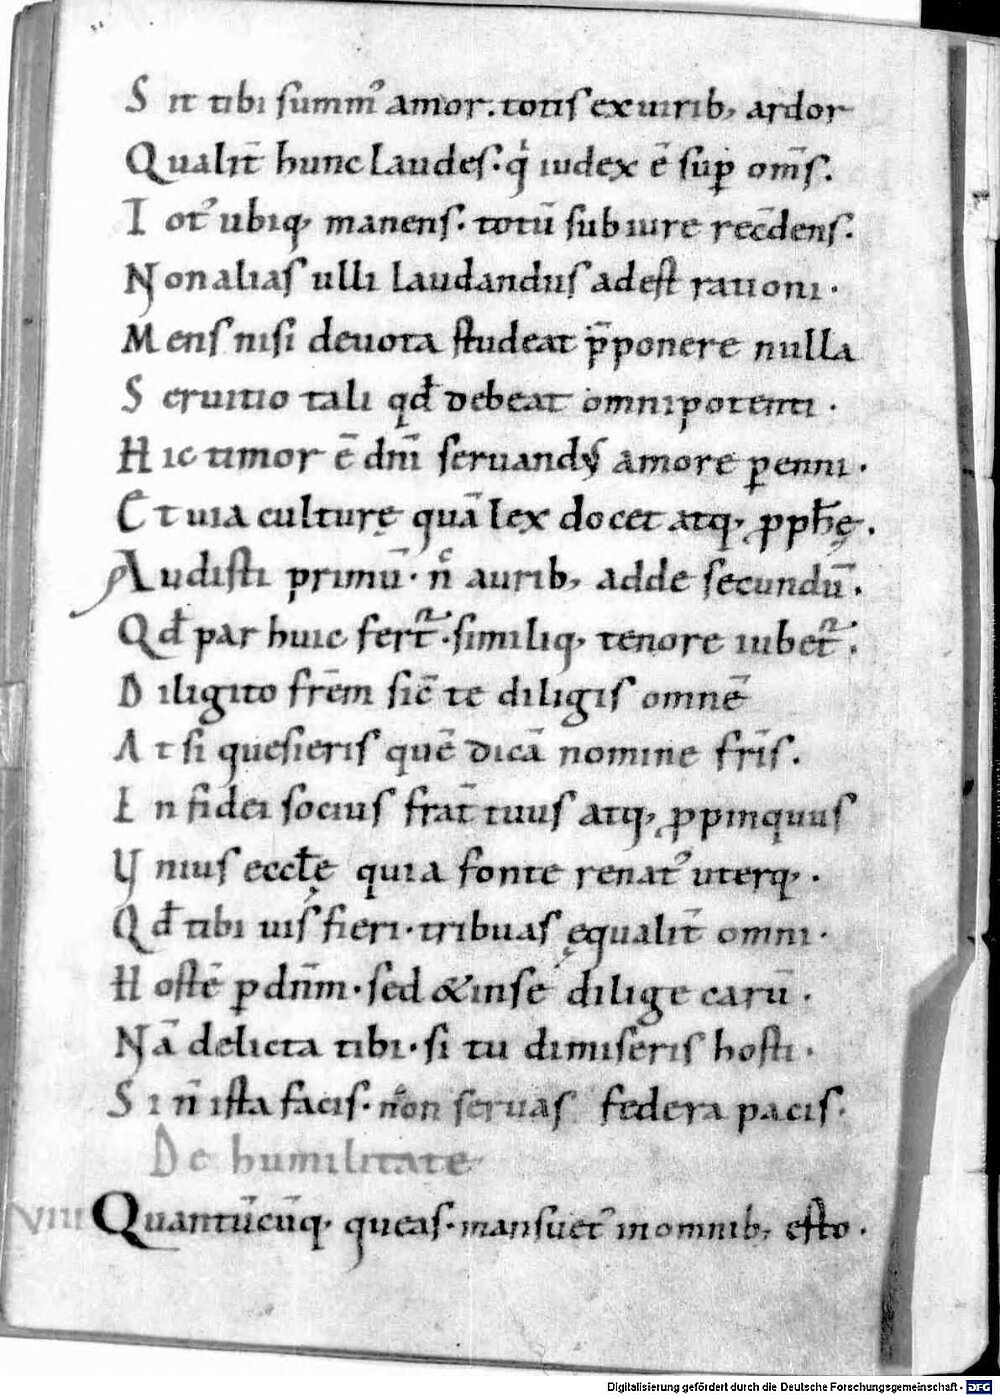 S it tibi summ᾽ amor. totis ex uirib; ardor
Qualit̄ hunc laudes. qͥ iudex ē sup̄ om̄s.
T ot᾽ ubiq; manens. totū sub iure rec̄dens.
N on alias ulli laudandus adest rationi.
M ens nisi deuota studeat p̄ponere nulla
S eruitio tali qd̄ debeat omnipotenti.
H ic timor ē dn̄i seruandus amore ꝑenni.
E t uia culturę quā lex docet atq; ꝓph̄ę.
A udisti primū. n̊ aurib; adde secundū.
Qd̄ par huic fert᷑. similiq; tenore iubet᷑.
D iligito fr̄em sic̄ te diligis omnē
A t si quesieris quē dicā nomine fr̄is.
I n fidei socius frat̄ tuus atq; ꝓpinquus
V nius eccl̄ę quia fonte renat᾽ uterq;.
Qd̄ tibi uis fieri. tribuas ęqualit̄ omni.
H ostē ꝑ dn̄m. sed & in se dilige carū.
N ā delicta tibi. si tu dimiseris hosti.
S i n̄ ista facis. non seruas federa pacis.
De humilitate
VIIII Quantūcūq; queas. mansuet᾽ in omnib; esto.
Digitalisierung gefördert durch die Deutsche Forschungsgemeinschaft - DFG